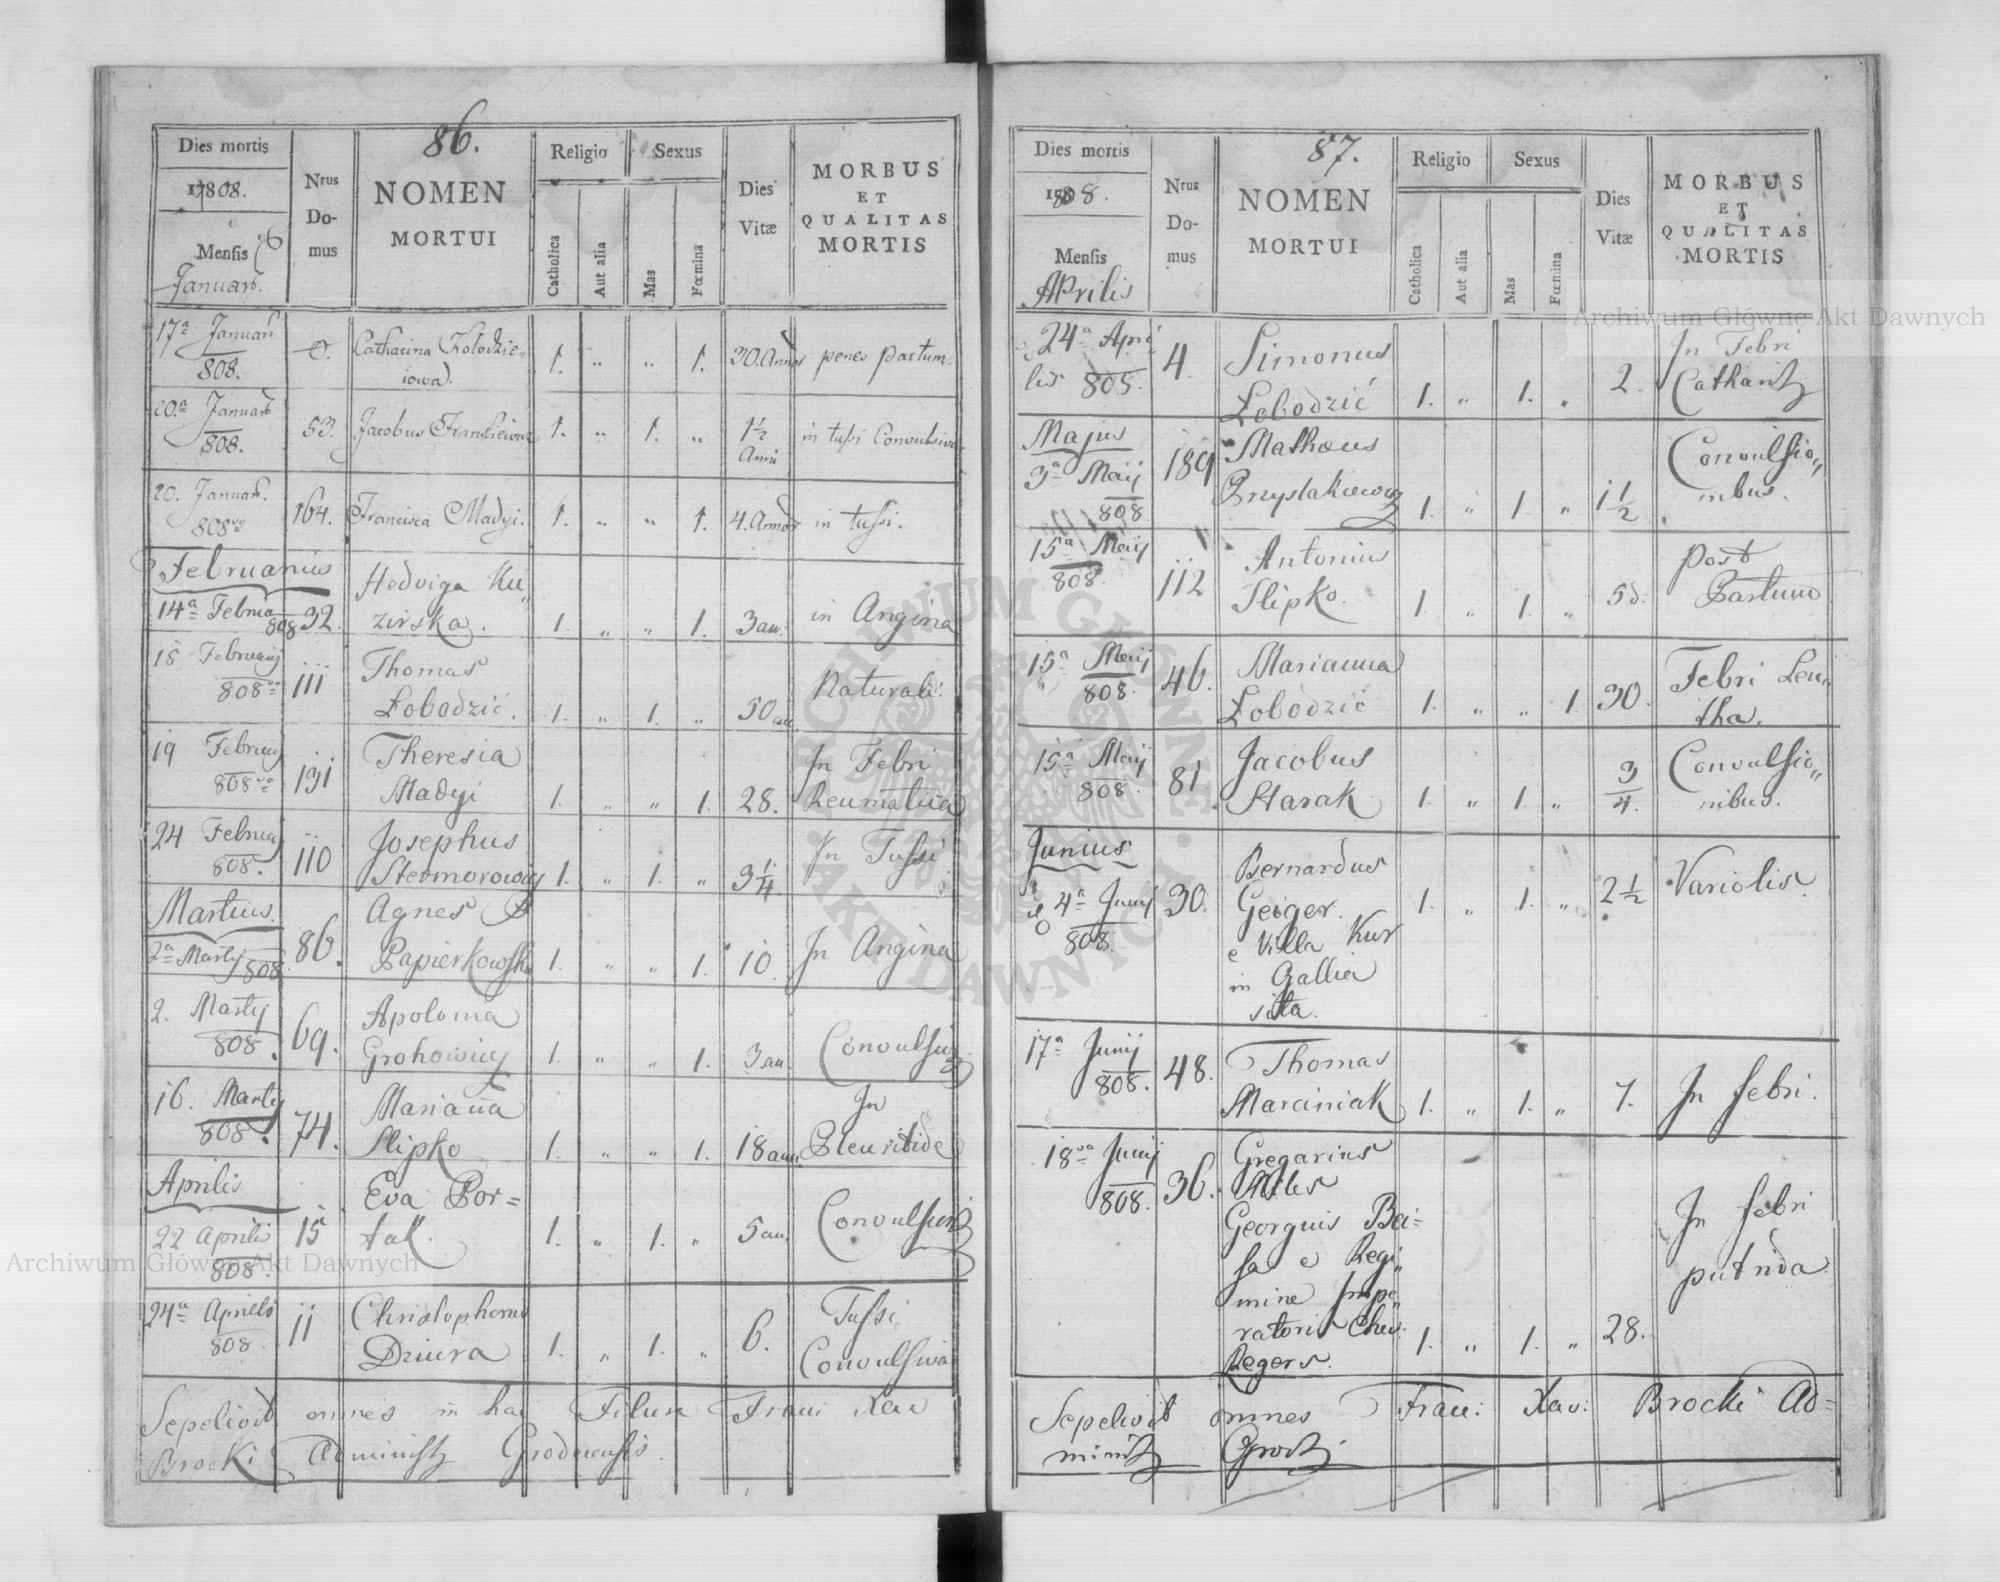 86.
Dies mortis
1808.
Mensis
Januar.
Nrus
Do-
mus
NOMEN
MORTUI
Religio
Catholica
Aut alia
Sexus
Mas
Fœmina
Dies
Vitæ
MORBUS
ET
QUALITAS
MORTIS
17a Januar
808.
Catharina Kołodzie„
iowa.
1. „ „ 1. 30. Annor penes partum.
20.a Januar
808.
53. Jacobus 1. „ 1. „ 1½
Anni
in tussi Convulsiva
20. Januar.
808vo
164. Francisca Madyi. 1. „ „ 1. 4. Annor in tussi.
Februarius
14a Februa
808
32. Hedviga Ku„
zirska.
1. „ „ 1. 3 an. in Angina
18 Februarij
808vo
111 Thomas
Łobodzić.
1. „ 1. „ 50 an Naturali.
19 Februarij
808vo
191 Theresia
Madyi
1. „ „ 1. 28. In Febri
Reumatica
24 Februarij
808.
110 Josephus
1. „ 1. „ 3¼ In Tussi
Martius.
2a Martij
808
86. Agnes
Papierkowska
1. „ „ 1. 10. In Angina
2. Martij
808.
69. Apolonia
1. „ „ 1. 3 an.
16. Martij
808.
74. Marianna
Slipko
1. „ „ 1. 18 ann. In
Pleuritide
Aprilis
22 Aprilis
808.
15 Eva Por=
tak.
1. „ 1. „ 5 an.
24a Aprilis
808
11 Christophorus
Dziura
1. „ 1. „ 6. Tussi
Convulsiva
Sepelivit omnes in hac Filura Franc Xav
Brocki Administ Grodecensis.
87.
Dies mortis
1808.
Mensis
Aprilis
Nrus
Do-
mus
NOMEN
MORTUI
Religio
Catholica
Aut alia
Sexus
Mas
Fœmina
Dies
Vitæ
MORBUS
ET
QUALITAS
MORTIS
24a Apri
lis 805.
4. Simonus
Łobodzić
1. „ 1. „ 2. In Febri
Majus
3a Maij
808
189 Mathæus
1. „ 1. „ 1½ Convulsio„
nibus.
15a Maij
808.
112 Antonius
Slipko.
1. „ 1. „ 5 d. post
Partum
15a Maij
808.
46. Marianna
Łobodzić
1. „ „ 1 30. Febri Len„
tha.
15a Maij
808.
81. Jacobus
Starak
1. „ 1. „ ¾ Convulsio„
nibus.
Junius.
4a Junij
808.
30. Bernardus
Geiger.
e Villa Kur
in Gallia
sita.
1. „ 1. „ 2½ Variolis.
17a Junij
808.
48. Thomas
Marciniak
1. „ 1. „ 7. In febri.
18va Junij
808.
36. Gregarius
Miles
Georguis Bai=
sa e Regi„
mine Impe„
ratoris Chev.
Regers.
1. „ 1. „ 28. In febri
putrida
Sepelivit omnes Franc: Xav: Brocki Ad=
minist
Archiwum Główne Akt Dawnych
Archiwum Główne Akt Dawnych
ARCHIWUM GŁÓWNE AKT DAWNYCH